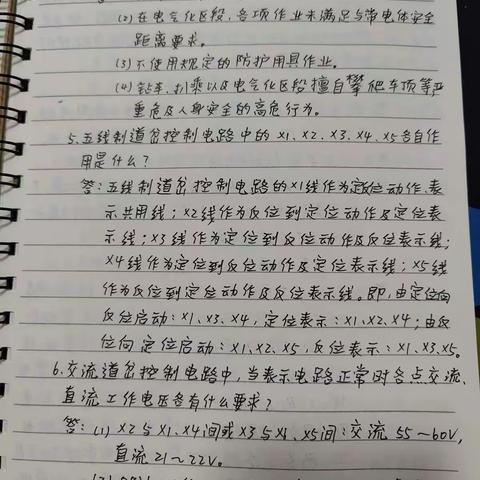 (2) 在电气化区段,各项作业未满足与带电体安全
距离要求。
(3) 不使用规定的防护用具作业。
(4) 钻车、扒乘以及电气化区段擅自攀爬车顶等严
重危及人身安全的高危行为。
5.五线制道岔控制电路中的X1、X2、X3、X4、X5各自作
用是什么?
答:五线制道岔控制电路的X1线作为定反位动作、表
示共用线;X2线作为反位到定位动作及定位表
示线;X3线作为定位到反位动作及反位表示线;
X4线作为定位到反位动作及定位表示线;X5线
作为反位到定位动作及反位表示线。即,由定位向
反位启动:X1、X3、X4,定位表示:X1、X2、X4;由反
位向定位启动:X1、X2、X5,反位表示:X1、X3、X5。
6.交流道岔控制电路中,当表示电路正常时各点交流、
直流工作电压各有什么要求?
答:(1) X2与X1、X4间或X3与X1、X5间:交流55~60V,
直流21~22V。